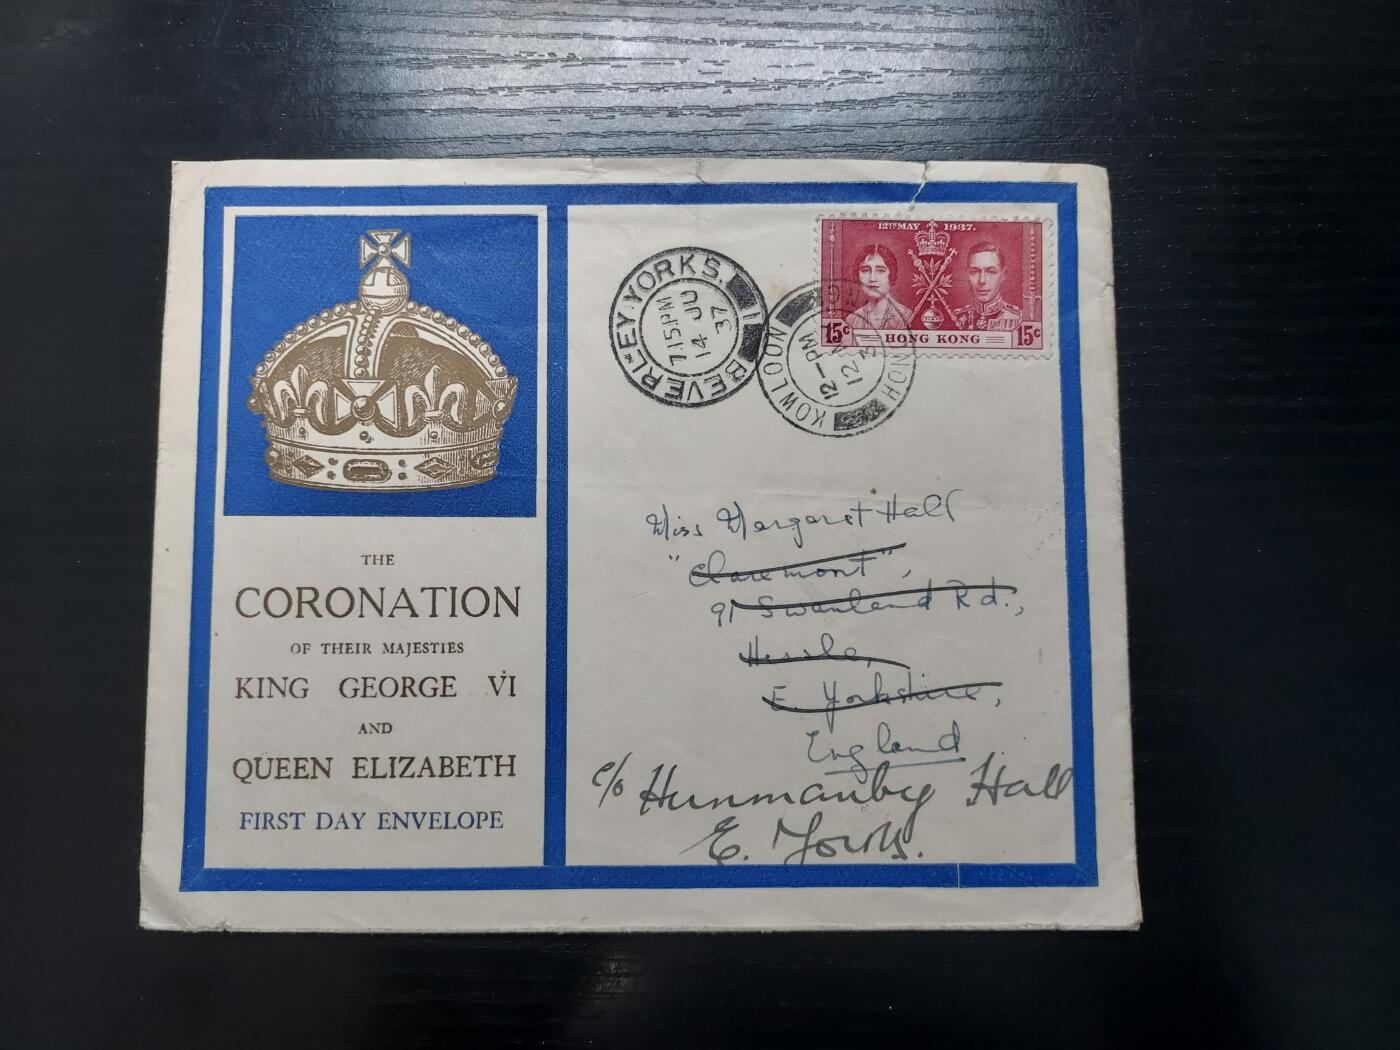 THE
CORONATION
OF THEIR MAJESTIES
KING GEORGE VI
AND
QUEEN ELIZABETH
FIRST DAY ENVELOPE
BEVERLEY. YORKS.
7.15 PM
14 JU
37
1
KOWLOON HONG
12 - PM
12
3
12TH MAY 1937.
15c HONG KONG 15c
Miss Margaret Hall
"Claremont",
91 Swanland Rd.,
Hessle,
E. Yorkshire,
England
c/o Hunmanby Hall
E. Yorks.